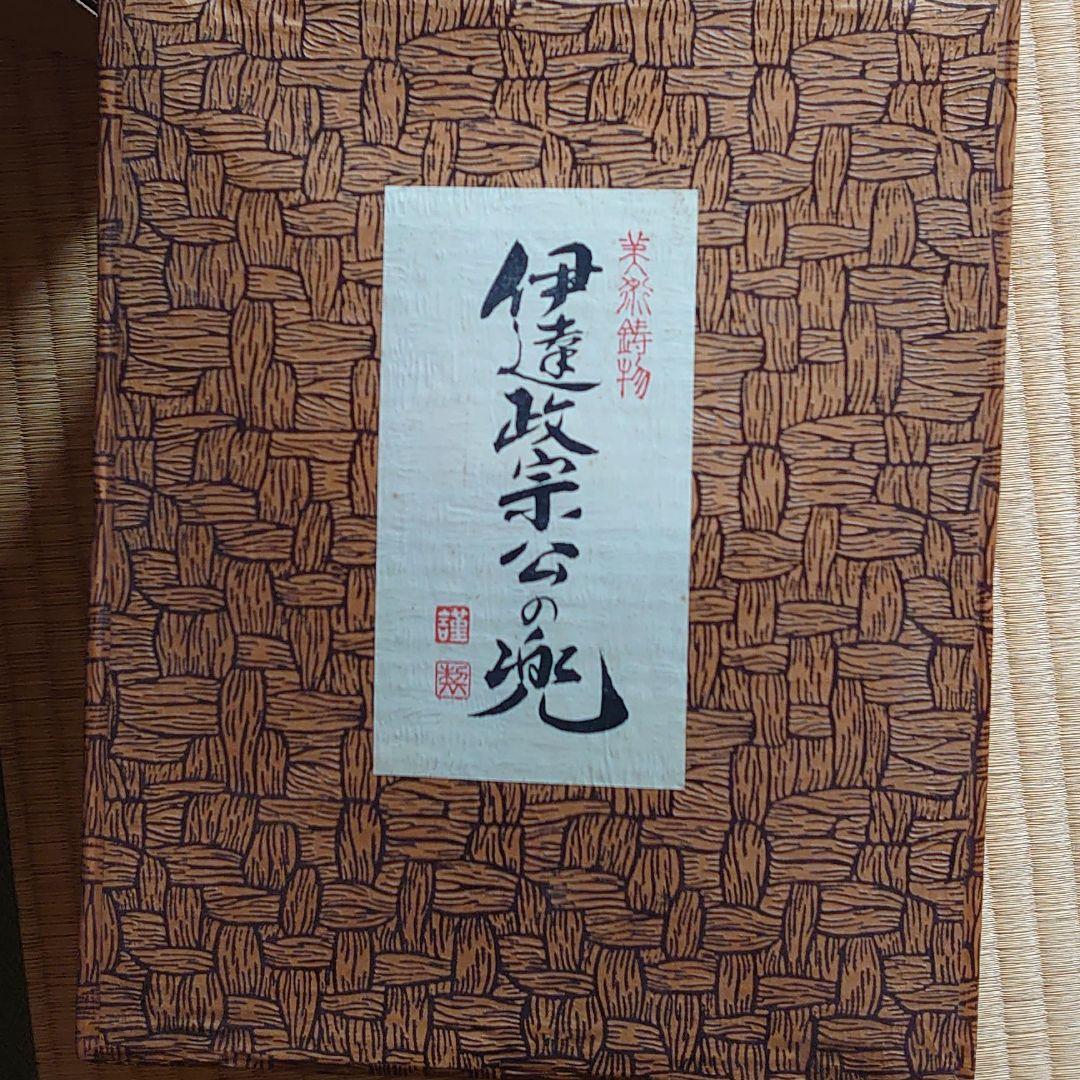 美術鋳物
伊達政宗公の兜
謹製